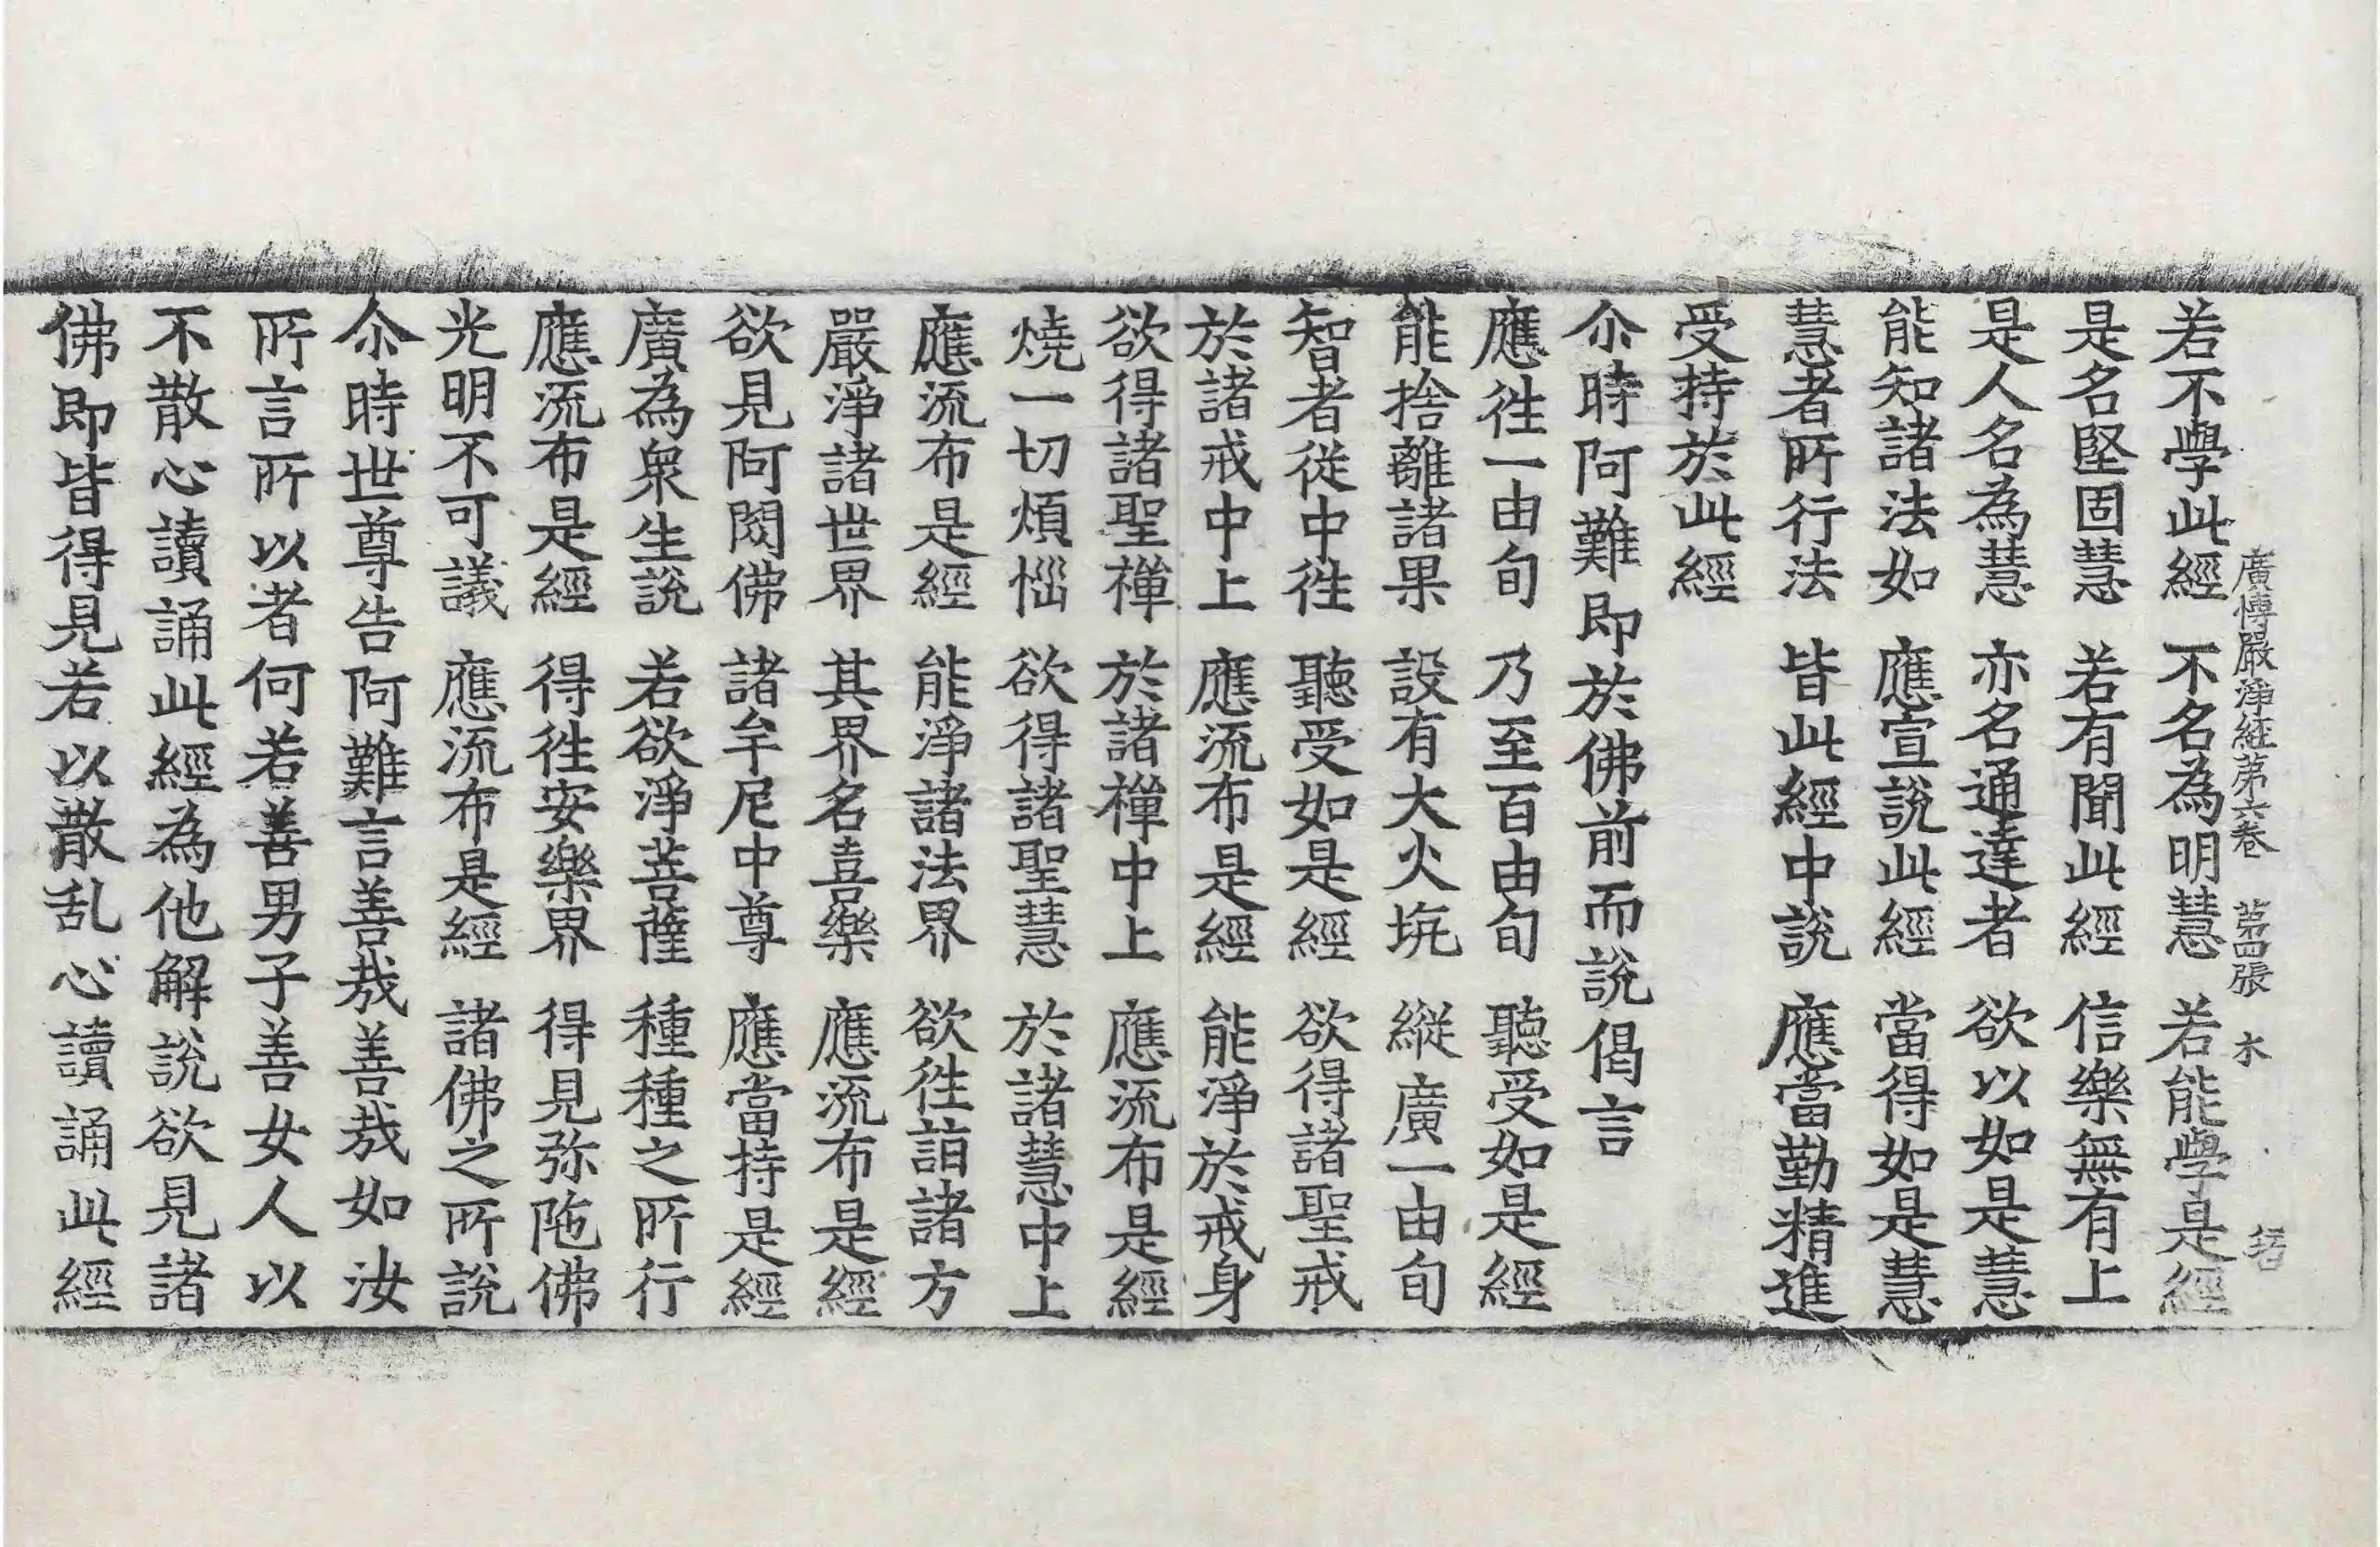 廣愽嚴淨經第六卷　第四張　木
若不學此經　不名為明慧　若能學是經
是名堅固慧　若有聞此經　信樂無有上
是人名為慧　亦名通達者　欲以如是慧
能知諸法如　應宣說此經　當得如是慧
慧者所行法　皆此經中說　應當勤精進
受持於此經
尒時阿難即於佛前而說偈言
應徃一由旬　乃至百由旬　聽受如是經
能捨離諸果　設有大火坑　縱廣一由旬
智者從中徃　聽受如是經　欲得諸聖戒
於諸戒中上　應流布是經　能淨於戒身
欲得諸聖禪　於諸禪中上　應流布是經
燒一切煩惱　欲得諸聖慧　於諸慧中上
應流布是經　能淨諸法界　欲徃詣諸方
嚴淨諸世界　其界名喜樂　應流布是經
欲見阿閦佛　諸牟尼中尊　應當持是經
廣為衆生說　若欲淨菩薩　種種之所行
應流布是經　得徃安樂界　得見弥陁佛
光明不可議　應流布是經　諸佛之所說
尒時世尊告阿難言善㦲善㦲如汝
所言所以者何若善男子善女人以
不散心讀誦此經為他解說欲見諸
佛即皆得見若以散乱心讀誦此經